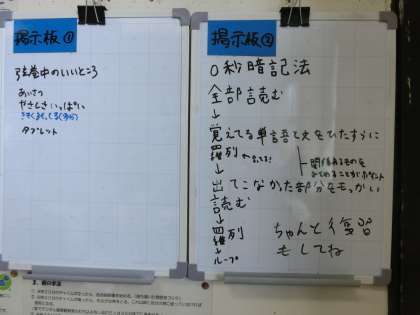 掲示板①
弦巻中のいいところ
あいさつ
やさしさ いっぱい
タブレット
掲示板②
0秒暗記法
全部読む
↓
覚えてる単語と文をひたすらに
羅列
↓
出てこなかった部分をもっかい
読む
↓
羅列
↓
ループ
関係あるものを
まとめることがポイント
ちゃんと復習
もしてね